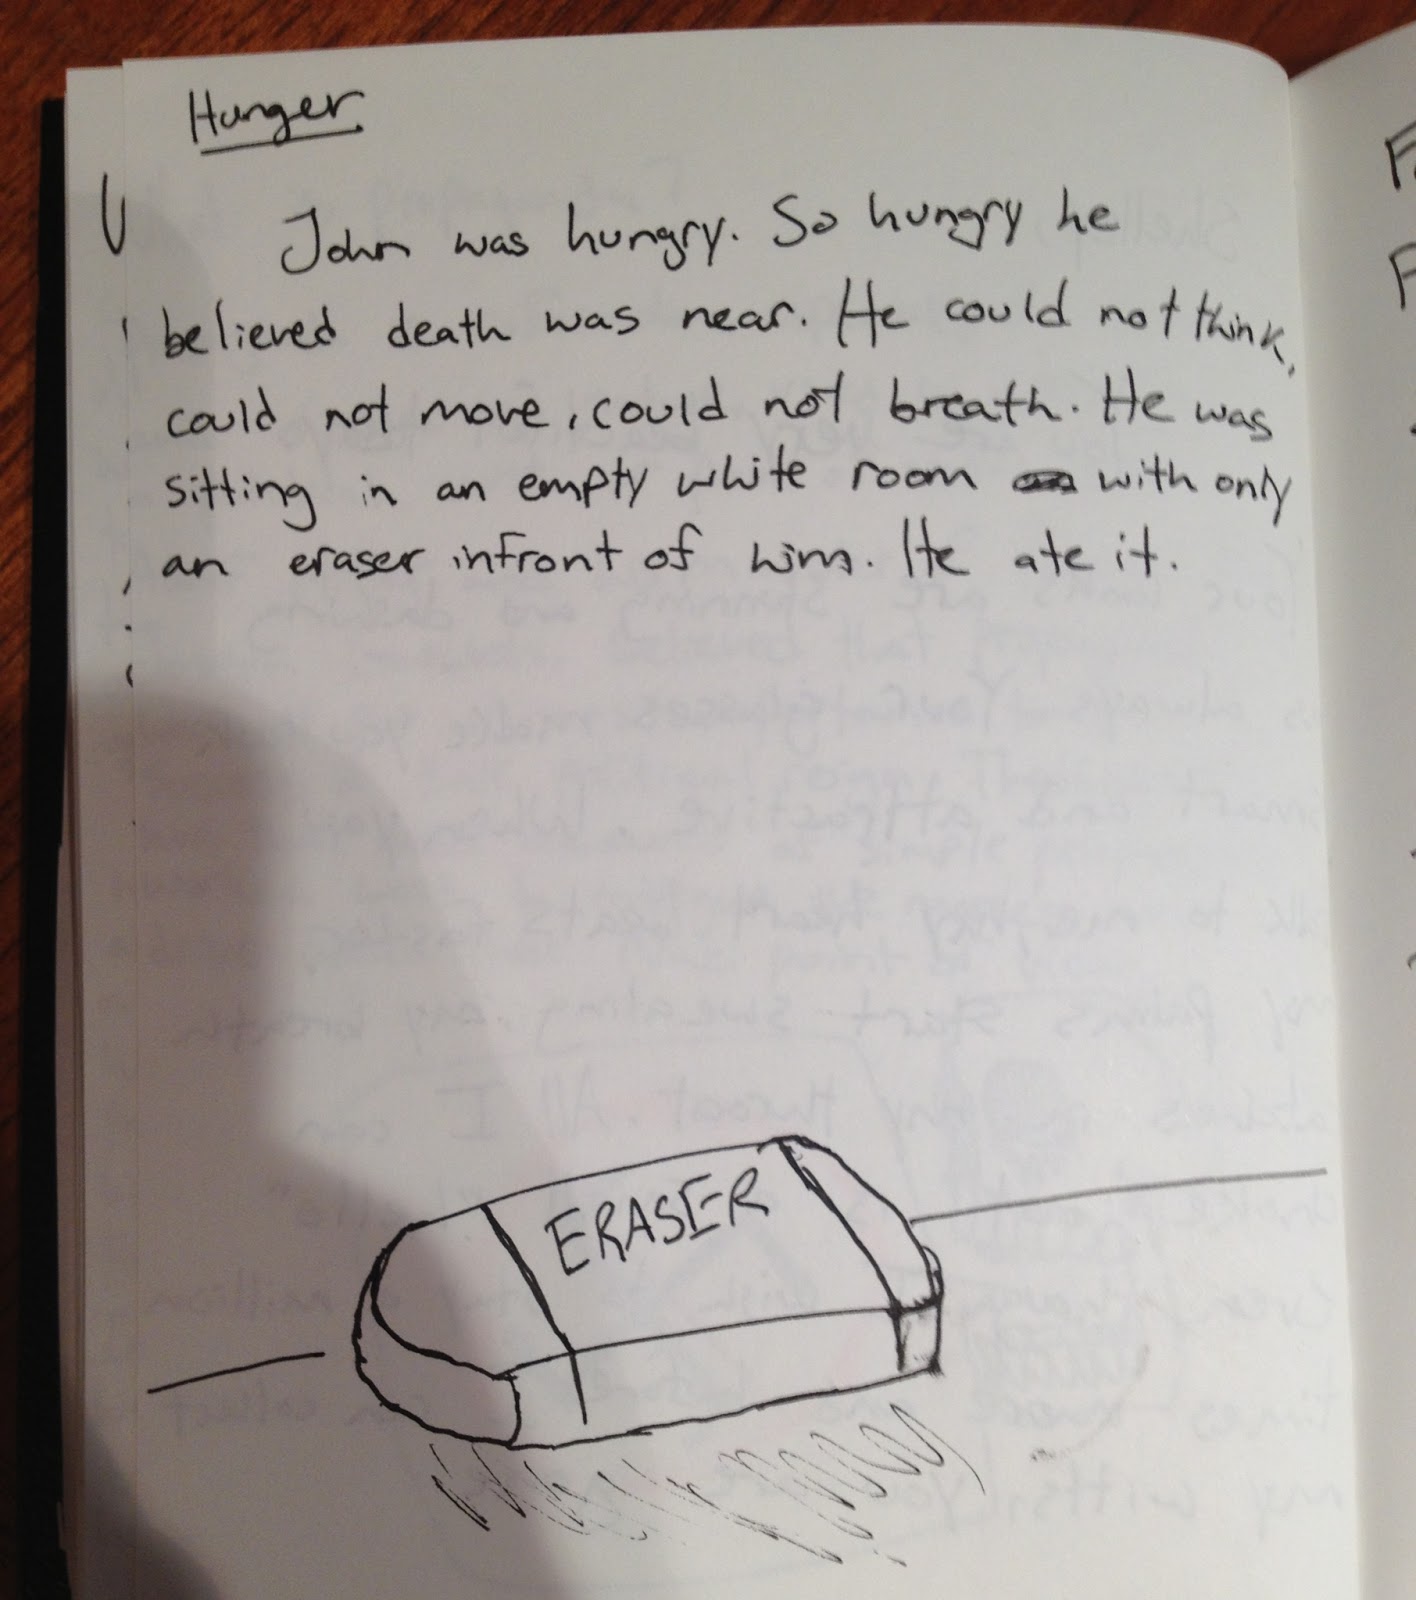 Hunger
John was hungry. So hungry he
believed death was near. He could not think,
could not move, could not breath. He was
sitting in an empty white room with only
an eraser infront of him. He ate it.
ERASER